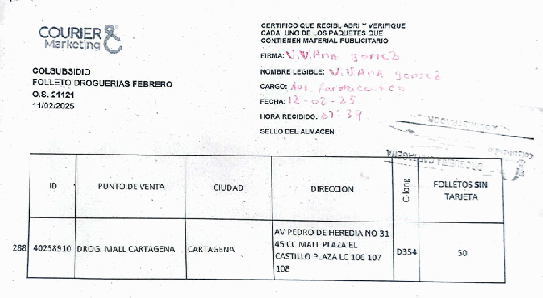 COURIER
Marketing
COLSUBSIDIO
FOLLETO DROGUERIAS FEBRERO
O.S. 21121
11/02/2025
CERTIFICO QUE RECIBI, ABRI Y VERIFIQUE
CADA UNO DE LOS PAQUETES QUE
CONTIENEN MATERIAL PUBLICITARIO
FIRMA: Viviana Gomez
NOMBRE LEGIBLE: Viviana Gomez
CARGO: Aux. Farmaceutico
FECHA: 12-02-25
HORA RECIBIDO: 07:39
SELLO DEL ALMACEN
ID PUNTO DE VENTA CIUDAD DIRECCION FOLLETOS SIN
TARJETA
288 40258910 DROG. MALL CARTAGENA CARTAGENA AV PEDRO DE HEREDIA NO 31
45 LC MALL PLAZA EL
CASTILLO PLAZA LC 106 107
108 D354 50